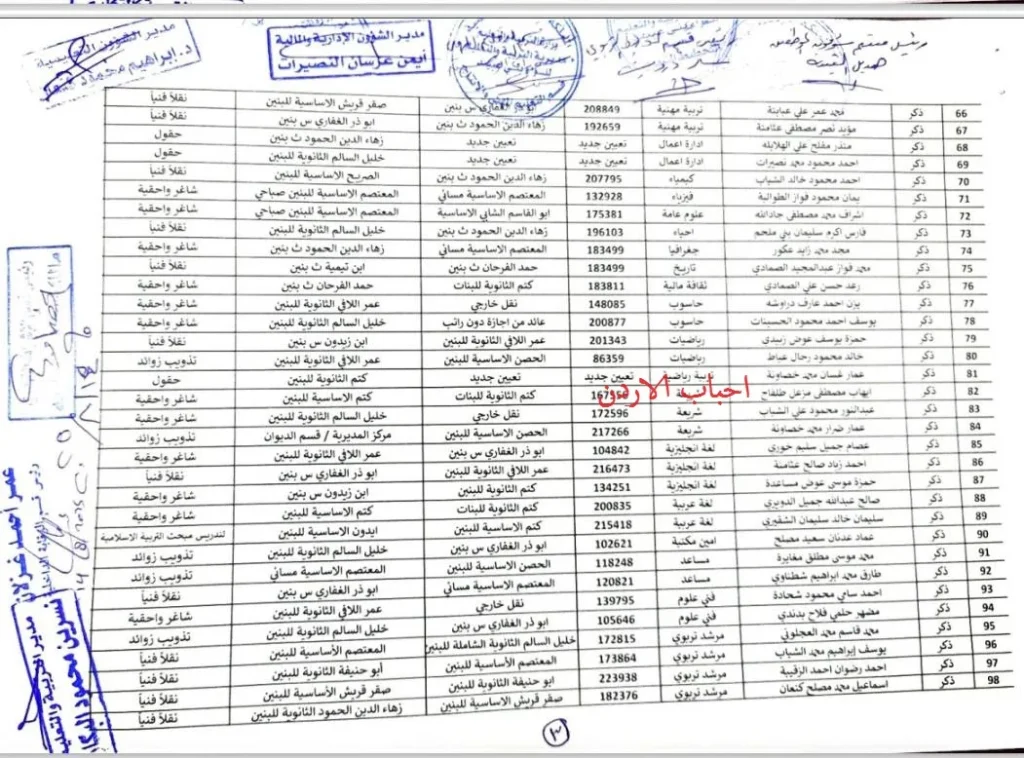 مدير الشؤون التعليمية
د. ابراهيم محمود
مدير الشؤون الإدارية والمالية
أيمن عرسان النصيرات
66 ذكر محمد عمر علي عبابنة تربية مهنية 208849 ابو ذر الغفاري س بنين صقر قريش الاساسية للبنين نقلاً فنياً
67 ذكر مؤيد نصر مصطفى عثامنة تربية مهنية 192659 زهاء الدين الحمود ث بنين ابو ذر الغفاري س بنين نقلاً فنياً
68 ذكر منذر مفلح علي الهلايله ادارة اعمال تعيين جديد تعيين جديد زهاء الدين الحمود ث بنين حقول
69 ذكر احمد محمود محمد نصيرات ادارة اعمال تعيين جديد تعيين جديد خليل السالم الثانوية للبنين حقول
70 ذكر احمد محمود خالد الشياب كيمياء 207795 زهاء الدين الحمود ث بنين الصريح الاساسية للبنين نقلاً فنياً
71 ذكر يمان محمود فواز الطوالبة فيزياء 132928 المعتصم الاساسية مسائي المعتصم الاساسية للبنين صباحي شاغر واحقية
72 ذكر اشراف محمد مصطفى جادالله علوم عامة 175381 ابو القاسم الشابي الاساسية المعتصم الاساسية للبنين صباحي شاغر واحقية
73 ذكر فارس اكرم سليمان بني ملحم احياء 196103 زهاء الدين الحمود ث بنين خليل السالم الثانوية للبنين نقلاً فنياً
74 ذكر مجد محمد زايد عكور جغرافيا 183499 المعتصم الاساسية مسائي زهاء الدين الحمود ث بنين شاغر واحقية
75 ذكر محمد فواز عبدالمجيد الصمادي تاريخ 183499 حمد الفرحان ث بنين ابن تيمية ث بنين نقلاً فنياً
76 ذكر رعد حسن علي الصمادي ثقافة مالية 183811 كتم الثانوية للبنات حمد الفرحان ث بنين شاغر واحقية
77 ذكر يزن احمد عارف دراوشه حاسوب 148085 نقل خارجي عمر اللافي الثانوية للبنين شاغر واحقية
78 ذكر يوسف احمد محمود الحسينات حاسوب 200877 عائد من اجازة دون راتب خليل السالم الثانوية للبنين شاغر واحقية
79 ذكر حمزة يوسف عوض زبيدي رياضيات 201343 عمر اللافي الثانوية للبنين ابن زيدون س بنين نقلاً فنياً
80 ذكر خالد محمود رحال عياط رياضيات 86359 الحصن الاساسية للبنين عمر اللافي الثانوية للبنين تذويب زوائد
81 ذكر عمار غسان محمد خصاونة تربية رياضية تعيين جديد تعيين جديد كتم الثانوية للبنين حقول
82 ذكر ايهاب مصطفى مزعل طلفاح كتم الثانوية للبنات كتم الاساسية للبنين شاغر واحقية
احباب الاردن
83 ذكر عبدالنور محمود علي الشياب شريعة 172596 نقل خارجي خليل السالم الثانوية للبنين شاغر واحقية
84 ذكر عمار ضرار محمد خصاونة شريعة 217266 الحصن الاساسية للبنين مركز المديرية / قسم الديوان تذويب زوائد
85 ذكر عصام جميل سليم خوري لغة انجليزية 104842 ابو ذر الغفاري س بنين عمر اللافي الثانوية للبنين شاغر واحقية
86 ذكر احمد زياد صالح عثامنة لغة انجليزية 216473 عمر اللافي الثانوية للبنين ابو ذر الغفاري س بنين نقلاً فنياً
87 ذكر حمزة موسى عوض مساعدة لغة انجليزية 134251 كتم الثانوية للبنين ابن زيدون س بنين شاغر واحقية
88 ذكر صالح عبدالله جميل الدويري لغة عربية 200835 كتم الثانوية للبنات كتم الاساسية للبنين شاغر واحقية
89 ذكر سليمان خالد سليمان الشقيري لغة عربية 215418 كتم الاساسية للبنين ايدون الاساسية للبنين لتدريس مبحث التربية الاسلامية
90 ذكر عماد عدنان سعيد مصلح امين مكتبة 102621 ابو ذر الغفاري س بنين خليل السالم الثانوية للبنين تذويب زوائد
91 ذكر محمد موسى مطلق مغايرة مساعد 118248 الحصن الاساسية للبنين المعتصم الاساسية مسائي تذويب زوائد
92 ذكر طارق محمد ابراهيم شطناوي مساعد 120821 المعتصم الاساسية مسائي ابو ذر الغفاري س بنين نقلاً فنياً
93 ذكر احمد سامي محمود شحادة فني علوم 139795 نقل خارجي عمر اللافي الثانوية للبنين شاغر واحقية
94 ذكر مضهر حلمي فلاح بدندي فني علوم 105646 ابو ذر الغفاري س بنين خليل السالم الثانوية للبنين تذويب زوائد
95 ذكر محمد قاسم محمد العجلوني مرشد تربوي 172815 خليل السالم الثانوية الشاملة للبنين المعتصم الأساسية للبنين نقلاً فنياً
96 ذكر يوسف إبراهيم محمد الشياب مرشد تربوي 173864 المعتصم الأساسية للبنين أبو حنيفة الثانوية للبنين نقلاً فنياً
97 ذكر احمد رضوان احمد الزقيبة مرشد تربوي 223938 ابو حنيفة الثانوية للبنين صقر قريش الأساسية للبنين نقلاً فنياً
98 ذكر اسماعيل محمد مصلح كنعان مرشد تربوي 182376 صقر قريش الاساسية للبنين زهاء الدين الحمود الثانوية للبنين نقلاً فنياً
عمر احمد غزلان
مدير التربية والتعليم
نسرين محمود البكار
٣